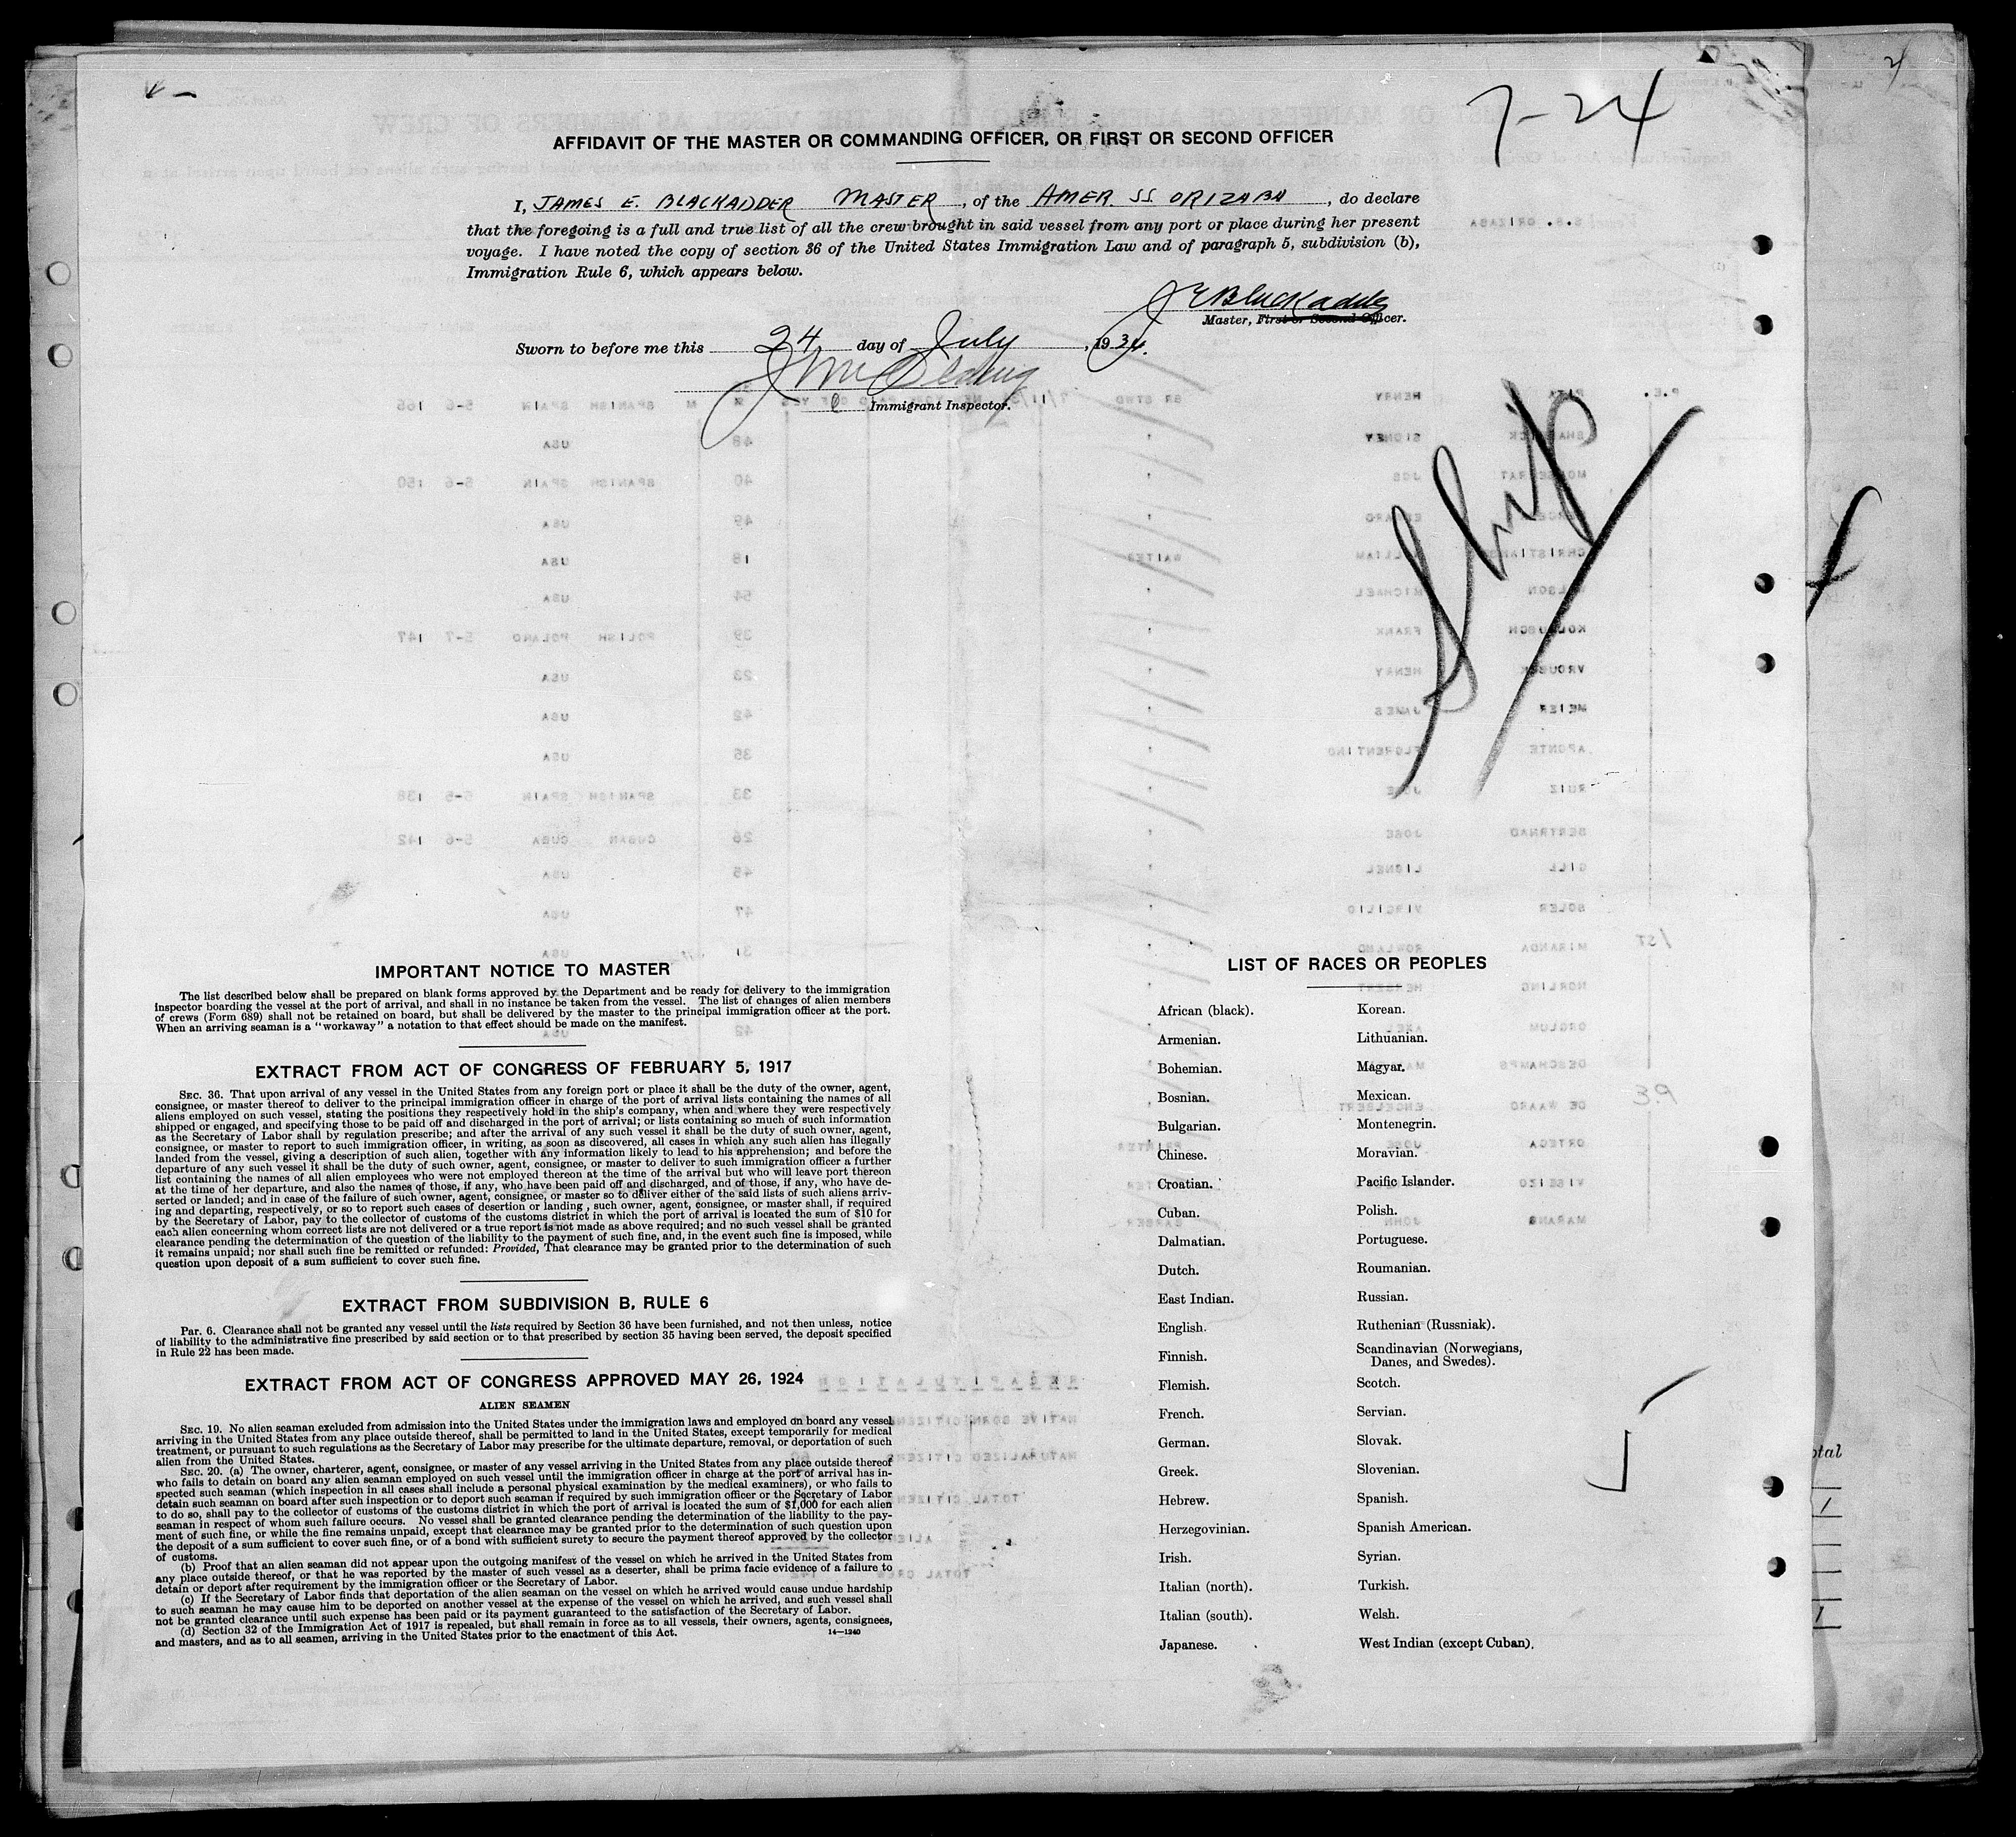 7-24
AFFIDAVIT OF THE MASTER OR COMMANDING OFFICER, OR FIRST OR SECOND OFFICER
I, JAMES E. BLACKADDER MASTER, of the AMER. SS ORIZABA, do declare
that the foregoing is a full and true list of all the crew brought in said vessel from any port or place during her present
voyage. I have noted the copy of section 36 of the United States Immigration Law and of paragraph 5, subdivision (b),
Immigration Rule 6, which appears below.
J E Blackadder
Master, First or Second Officer.
Sworn to before me this 24 day of July, 1934.
Immigrant Inspector.
Ship
IMPORTANT NOTICE TO MASTER
The list described below shall be prepared on blank forms approved by the Department and be ready for delivery to the immigration
inspector boarding the vessel at the port of arrival, and shall in no instance be taken from the vessel. The list of changes of alien members
of crews (Form 689) shall not be retained on board, but shall be delivered by the master to the principal immigration officer at the port.
When an arriving seaman is a "workaway" a notation to that effect should be made on the manifest.
EXTRACT FROM ACT OF CONGRESS OF FEBRUARY 5, 1917
SEC. 36. That upon arrival of any vessel in the United States from any foreign port or place it shall be the duty of the owner, agent,
consignee, or master thereof to deliver to the principal immigration officer in charge of the port of arrival lists containing the names of all
aliens employed on such vessel, stating the positions they respectively hold in the ship's company, when and where they were respectively
shipped or engaged, and specifying those to be paid off and discharged in the port of arrival; or lists containing so much of such information
as the Secretary of Labor shall by regulation prescribe; and after the arrival of any such vessel it shall be the duty of such owner, agent,
consignee, or master to report to such immigration officer, in writing, as soon as discovered, all cases in which any such alien has illegally
landed from the vessel, giving a description of such alien, together with any information likely to lead to his apprehension; and before the
departure of any such vessel it shall be the duty of such owner, agent, consignee, or master to deliver to such immigration officer a further
list containing the names of all alien employees who were not employed thereon at the time of the arrival but who will leave port thereon
at the time of her departure, and also the names of those, if any, who have been paid off and discharged, and of those, if any, who have de-
serted or landed; and in case of the failure of such owner, agent, consignee, or master so to deliver either of the said lists of such aliens arriv-
ing and departing, respectively, or so to report such cases of desertion or landing, such owner, agent, consignee, or master shall, if required
by the Secretary of Labor, pay to the collector of customs of the customs district in which the port of arrival is located the sum of $10 for
each alien concerning whom correct lists are not delivered or a true report is not made as above required; and no such vessel shall be granted
clearance pending the determination of the question of the liability to the payment of such fine, and, in the event such fine is imposed, while
it remains unpaid; nor shall such fine be remitted or refunded: Provided, That clearance may be granted prior to the determination of such
question upon deposit of a sum sufficient to cover such fine.
EXTRACT FROM SUBDIVISION B, RULE 6
Par. 6. Clearance shall not be granted any vessel until the lists required by Section 36 have been furnished, and not then unless, notice
of liability to the administrative fine prescribed by said section or to that prescribed by section 35 having been served, the deposit specified
in Rule 22 has been made.
EXTRACT FROM ACT OF CONGRESS APPROVED MAY 26, 1924
ALIEN SEAMEN
SEC. 19. No alien seaman excluded from admission into the United States under the immigration laws and employed on board any vessel
arriving in the United States from any place outside thereof, shall be permitted to land in the United States, except temporarily for medical
treatment, or pursuant to such regulations as the Secretary of Labor may prescribe for the ultimate departure, removal, or deportation of such
alien from the United States.
SEC. 20. (a) The owner, charterer, agent, consignee, or master of any vessel arriving in the United States from any place outside thereof
who fails to detain on board any alien seaman employed on such vessel until the immigration officer in charge at the port of arrival has in-
spected such seaman (which inspection in all cases shall include a personal physical examination by the medical examiners), or who fails to
detain such seaman on board after such inspection or to deport such seaman if required by such immigration officer or the Secretary of Labor
to do so, shall pay to the collector of customs of the customs district in which the port of arrival is located the sum of $1,000 for each alien
seaman in respect of whom such failure occurs. No vessel shall be granted clearance pending the determination of the liability to the pay-
ment of such fine, or while the fine remains unpaid, except that clearance may be granted prior to the determination of such question upon
the deposit of a sum sufficient to cover such fine, or of a bond with sufficient surety to secure the payment thereof approved by the collector
of customs.
(b) Proof that an alien seaman did not appear upon the outgoing manifest of the vessel on which he arrived in the United States from
any place outside thereof, or that he was reported by the master of such vessel as a deserter, shall be prima facie evidence of a failure to
detain or deport after requirement by the immigration officer or the Secretary of Labor.
(c) If the Secretary of Labor finds that deportation of the alien seaman on the vessel on which he arrived would cause undue hardship
to such seaman he may cause him to be deported on another vessel at the expense of the vessel on which he arrived, and such vessel shall
not be granted clearance until such expense has been paid or its payment guaranteed to the satisfaction of the Secretary of Labor.
(d) Section 32 of the Immigration Act of 1917 is repealed, but shall remain in force as to all vessels, their owners, agents, consignees,
and masters, and as to all seamen, arriving in the United States prior to the enactment of this Act.
14—1240
LIST OF RACES OR PEOPLES
African (black).
Armenian.
Bohemian.
Bosnian.
Bulgarian.
Chinese.
Croatian.
Cuban.
Dalmatian.
Dutch.
East Indian.
English.
Finnish.
Flemish.
French.
German.
Greek.
Hebrew.
Herzegovinian.
Irish.
Italian (north).
Italian (south).
Japanese.
Korean.
Lithuanian.
Magyar.
Mexican.
Montenegrin.
Moravian.
Pacific Islander.
Polish.
Portuguese.
Roumanian.
Russian.
Ruthenian (Russniak).
Scandinavian (Norwegians,
Danes, and Swedes).
Scotch.
Servian.
Slovak.
Slovenian.
Spanish.
Spanish American.
Syrian.
Turkish.
Welsh.
West Indian (except Cuban).